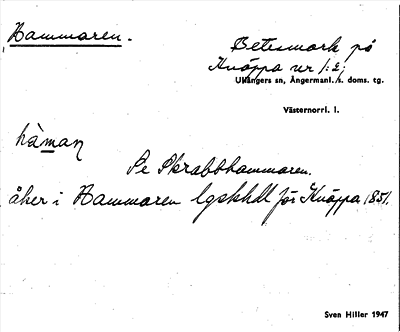 Hammaren.
Betesmark på
Knäppa nr 1:2;
Ullångers sn, Ångermanl. s. doms. tg.
Västernorrl. l.
hàmaɳ
Se Skrabbhammaren.
åker i Hammaren lgskhdl för Knäppa 1851.
Sven Hiller 1947